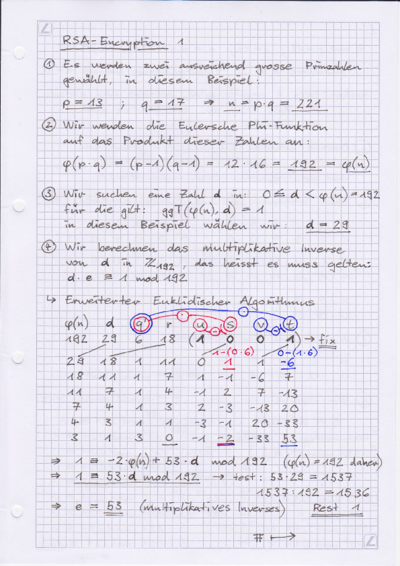 RSA-Encryption 1
① Es werden zwei ausreichend grosse Primzahlen
gewählt, in diesem Beispiel:
p = 13 ; q = 17 ⇒ n = p·q = 221
② Wir wenden die Eulersche Phi-Funktion
auf das Produkt dieser Zahlen an:
φ(p·q) = (p-1)(q-1) = 12·16 = 192 = φ(n)
③ Wir suchen eine Zahl d in: 0 ≤ d < φ(n) = 192
für die gilt: ggT(φ(n), d) = 1
in diesem Beispiel wählen wir: d = 29
④ Wir berechnen das multiplikative Inverse
von d in ℤ192, das heisst es muss gelten:
d·e ≡ 1 mod 192
↳ Erweiterter Euklidischer Algorithmus
φ(n) d q r u s v t
192 29 6 18 (1 0 0 1) → fix
1-(0·6) 0-(1·6)
29 18 1 11 0 1 1 -6
18 11 1 7 1 -1 -6 7
11 7 1 4 -1 2 7 -13
7 4 1 3 2 -3 -13 20
4 3 1 1 -3 -1 20 -33
3 1 3 0 -1 -2 -33 53
⇒ 1 ≡ -2·φ(n) + 53·d mod 192 (φ(n) = 192 daher)
⇒ 1 ≡ 53·d mod 192 → test: 53·29 = 1537
1537:192 = 1536
⇒ e = 53 (multiplikatives Inverses) Rest 1